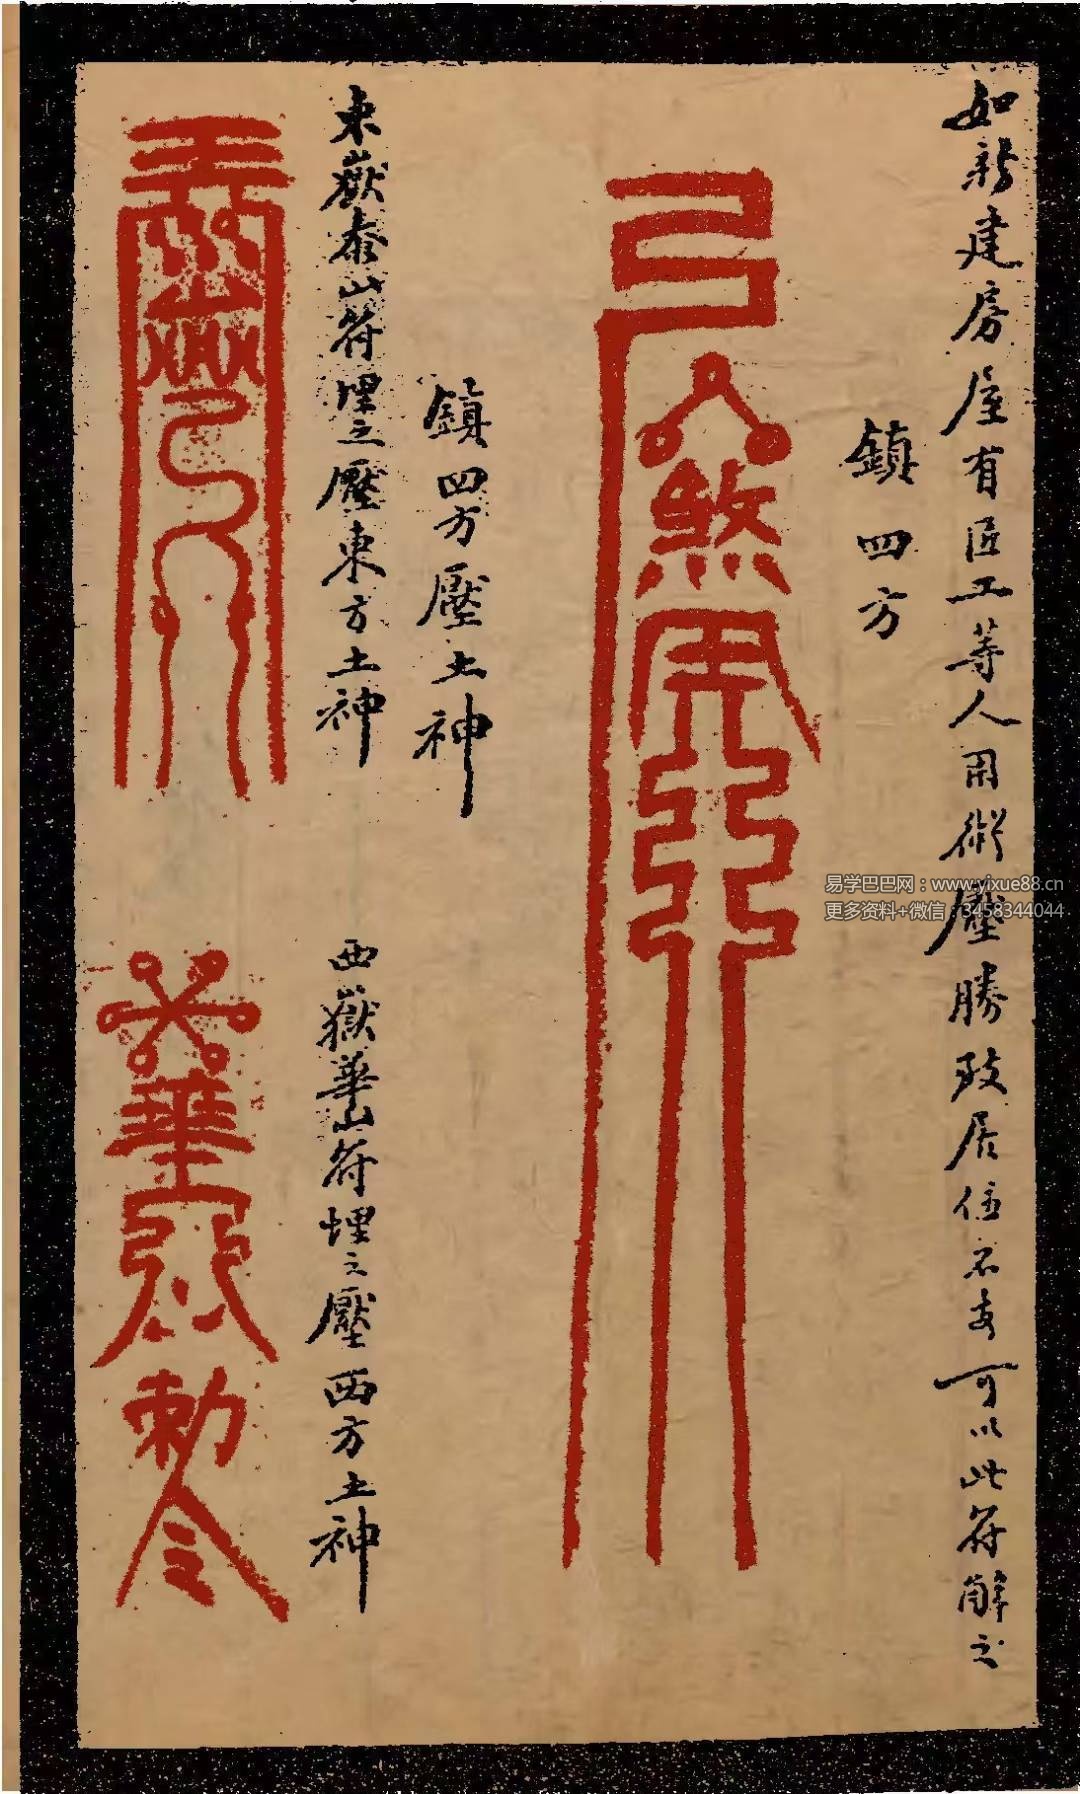 如新建房屋有匠工等人用術壓勝致居住不安可以此符解之
鎮四方
鎮四方壓土神
東嶽泰山符埋之壓東方土神
西嶽華山符埋之壓西方土神
煞
華
勅令
易学巴巴网：www.yixue88.cn
更多资料+微信 13458344044